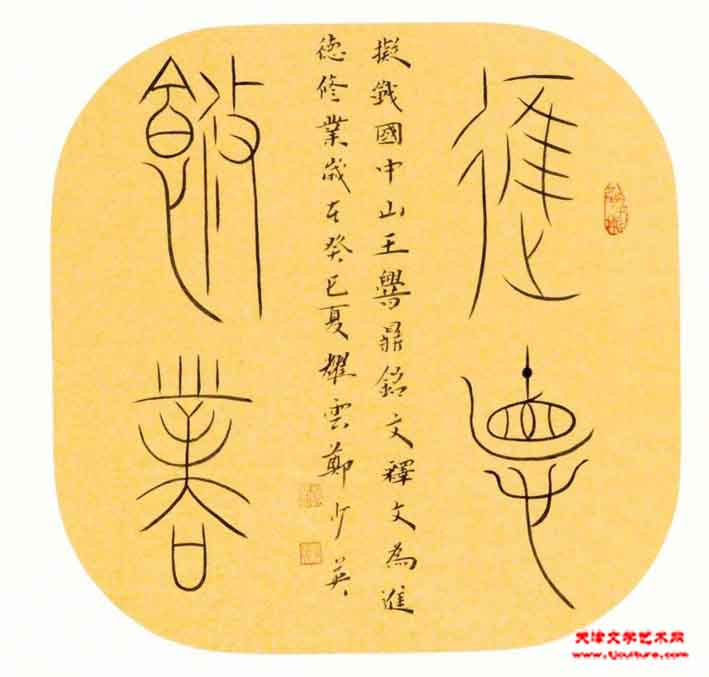 進悳
擬戰國中山王譽鼎銘文釋文為進
德修業歲在癸巳夏耀雲鄭少英
修業
天津文学艺术网
www.tjculture.com